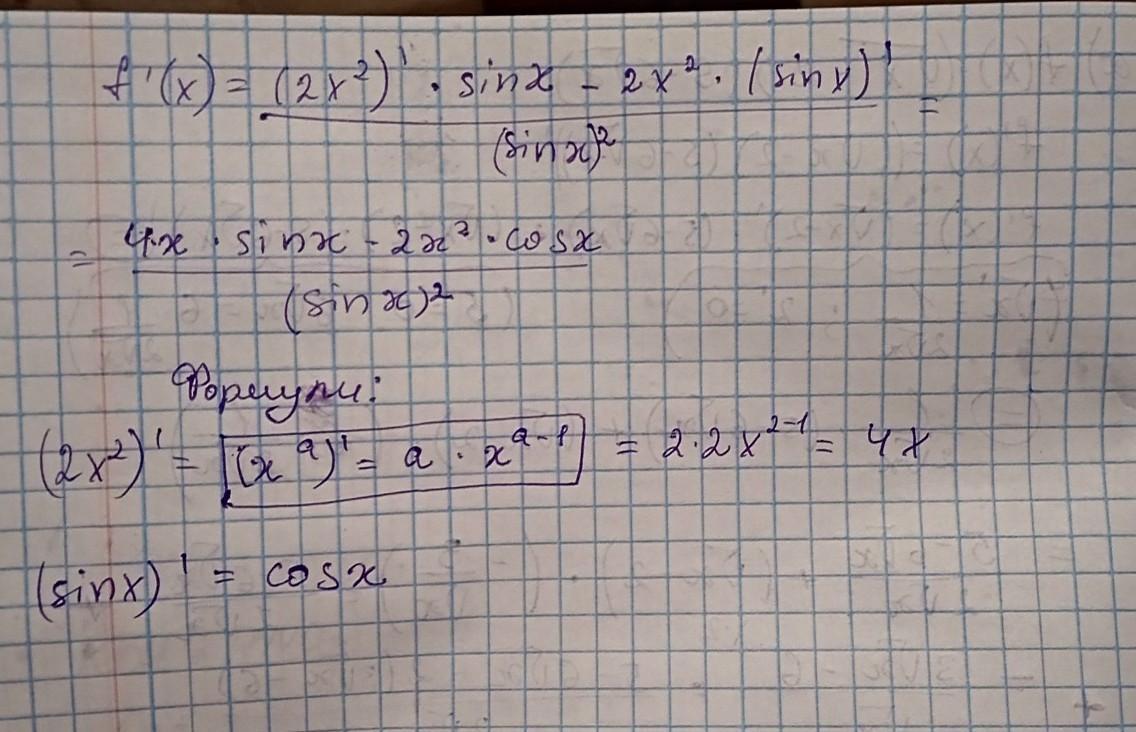 f'(x) = (2x²)' · sinx - 2x² · (sinx)' =
(sinx)²
= 4·x · sinx - 2x² · cosx
(sinx)²
Формули:
(2x²)' = (xᵃ)' = a · xᵃ⁻¹ = 2·2x²⁻¹ = 4x
(sinx)' = cosx